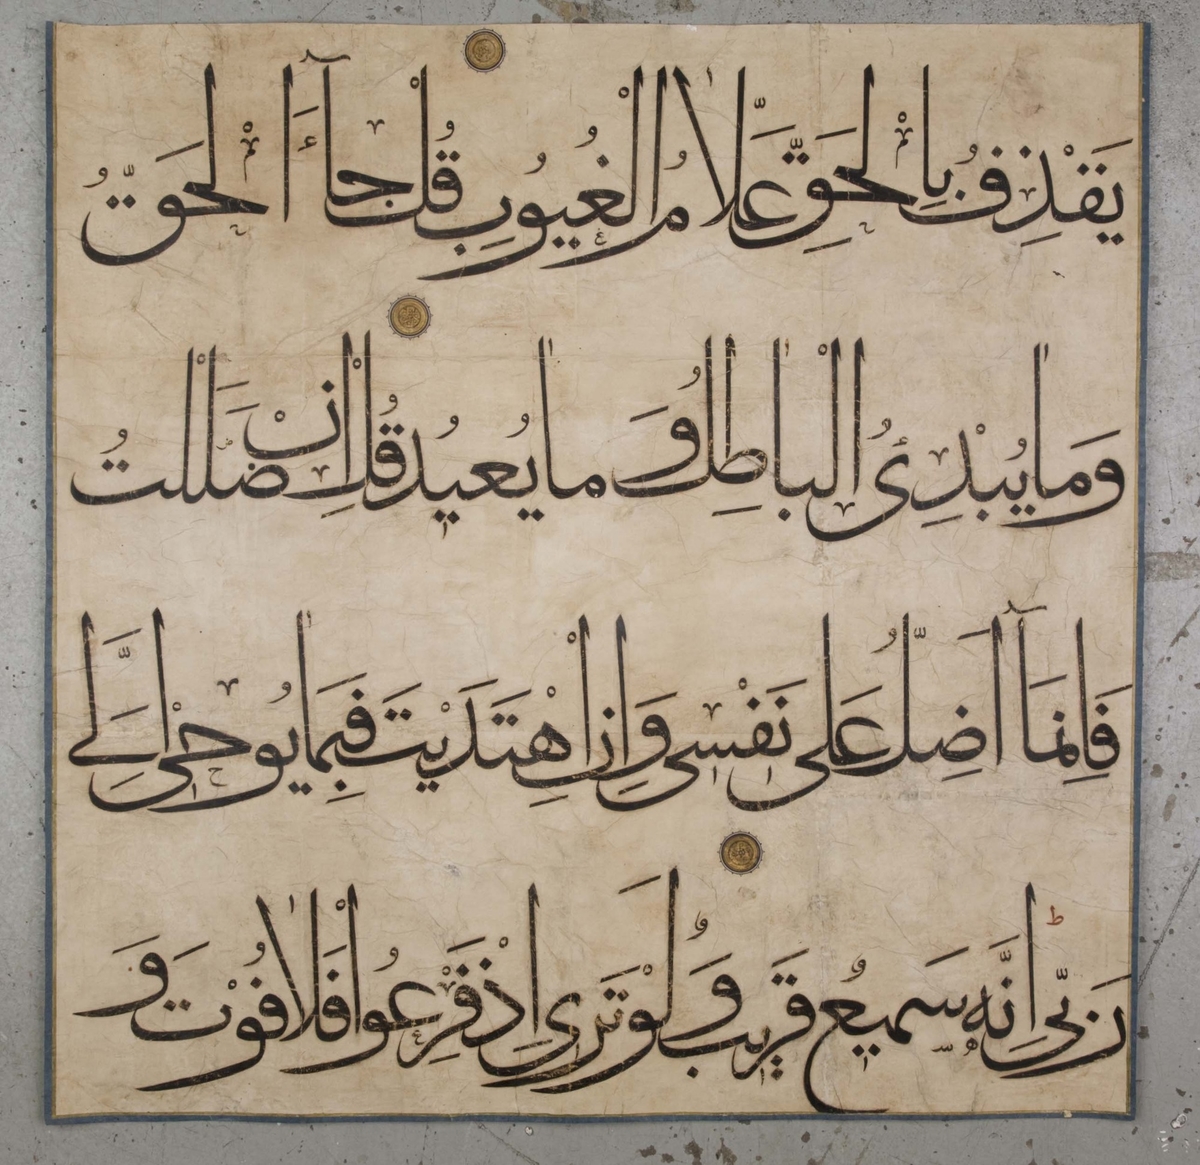 يَقْذِفُ بِالْحَقِّ عَلَّامُ الْغُيُوبِ قُلْ جَآءَ الْحَقُّ
وَمَا يُبْدِئُ الْبَاطِلُ وَمَا يُعِيدُ قُلْ اِنْ ضَلَلْتُ
فَاِنَّمَآ اَضِلُّ عَلَى نَفْسِى وَاِنِ اهْتَدَيْتُ فَبِمَا يُوحِىْ اِلَىَّ
رَبِّى اِنَّهُ سَمِيعٌ قَرِيبٌ وَلَوْ تَرَى اِذْ فَزِعُوا فَلَا فَوْتَ وَ